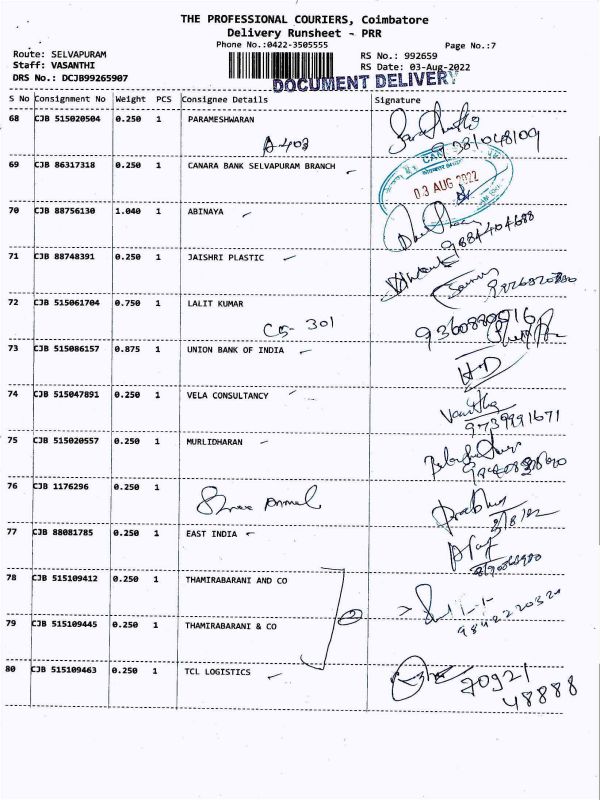 THE PROFESSIONAL COURIERS, Coimbatore
Delivery Runsheet - PRR
Phone No.:0422-3505555 Page No.:7
Route: SELVAPURAM RS No.: 992659
Staff: VASANTHI RS Date: 03-Aug-2022
DRS No.: DCJB99265907 DOCUMENT DELIVERY
S No Consignment No Weight PCS Consignee Details Signature
68 CJB 515020504 0.250 1 PARAMESHWARAN
A-403
69 CJB 86317318 0.250 1 CANARA BANK SELVAPURAM BRANCH
03 AUG 2022
70 CJB 88756130 1.040 1 ABINAYA
71 CJB 88748391 0.250 1 JAISHRI PLASTIC
72 CJB 515061704 0.750 1 LALIT KUMAR
C5- 301
73 CJB 515086157 0.875 1 UNION BANK OF INDIA
74 CJB 515047891 0.250 1 VELA CONSULTANCY
9739991671
75 CJB 515020557 0.250 1 MURLIDHARAN
76 CJB 1176296 0.250 1
77 CJB 88081785 0.250 1 EAST INDIA
78 CJB 515109412 0.250 1 THAMIRABARANI AND CO
2
79 CJB 515109445 0.250 1 THAMIRABARANI & CO
80 CJB 515109463 0.250 1 TCL LOGISTICS
70921
48888